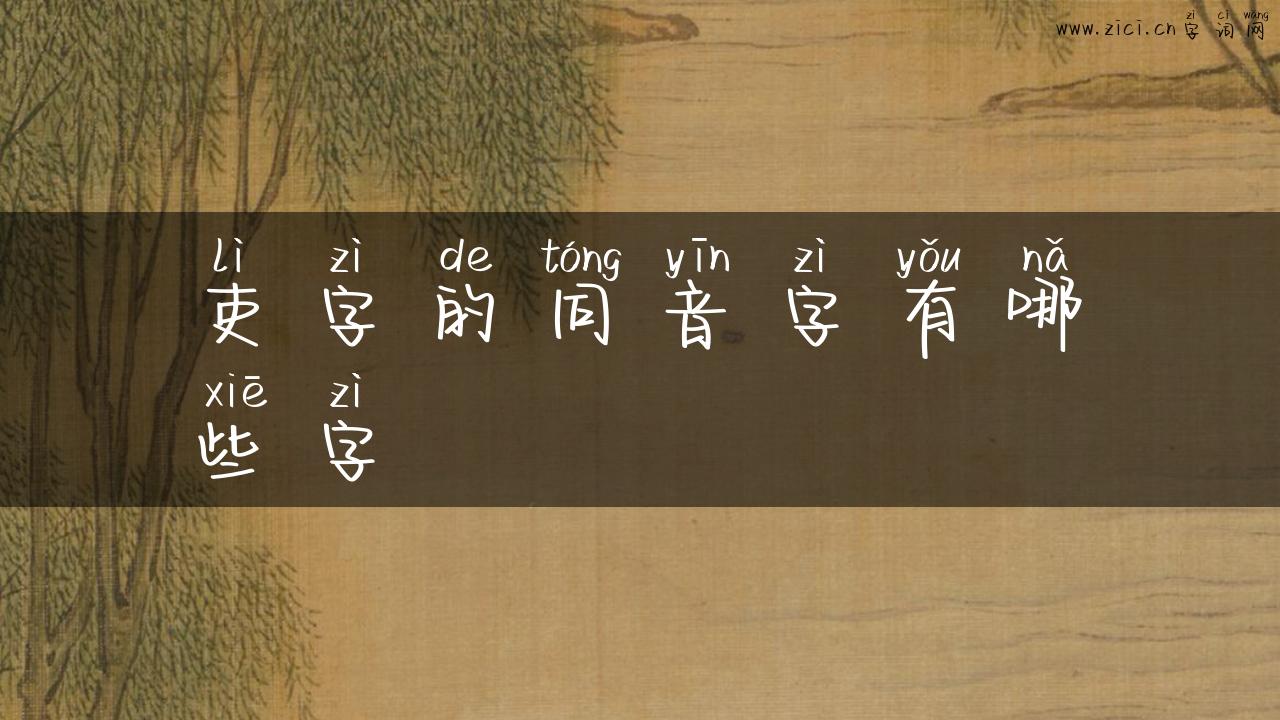 zì cí wǎng
www.zici.cn 字词网
lì zì de tóng yīn zì yǒu nǎ
吏字的同音字有哪
xiē zì
些字